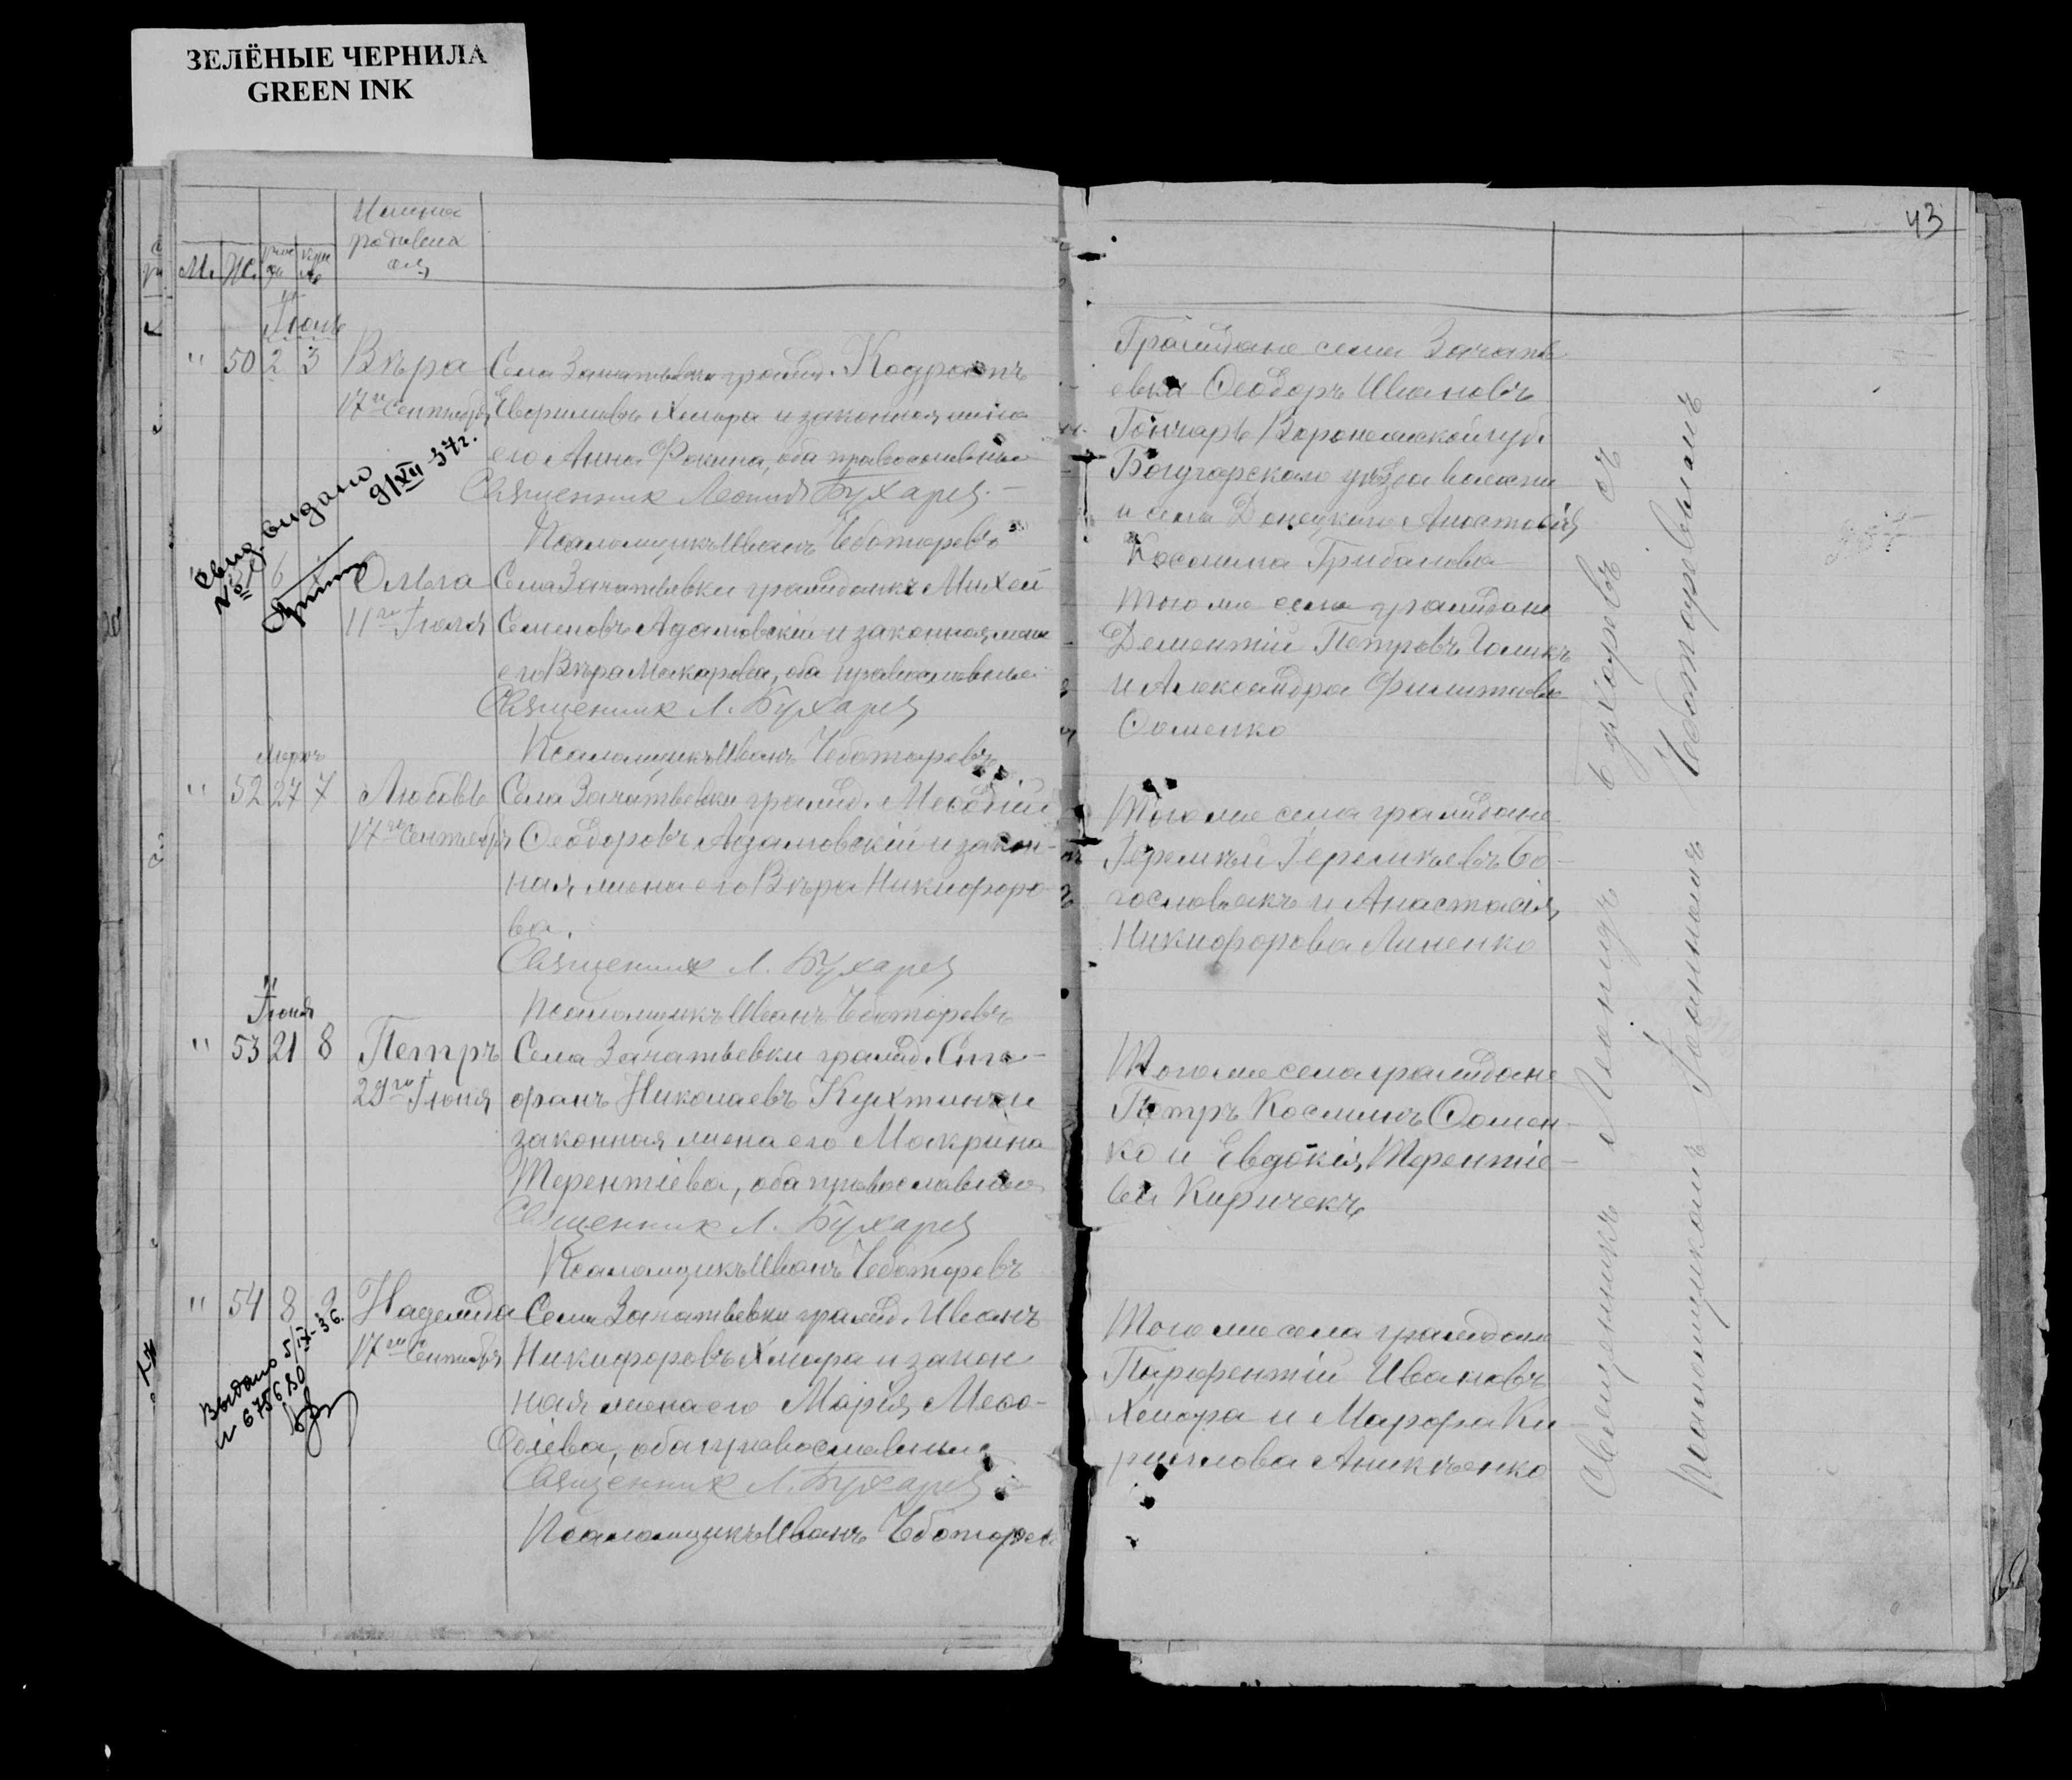 ЗЕЛЁНЫЕ ЧЕРНИЛА
GREEN INK
Имена
родивших
ся
М. Ж.
" 50 2 3 Вѣра
17го Сентября
Села Зачатьевки гражд. Кодратъ
Евфимовъ Хмара и законная жена
его Анна Фокина, оба православные
Священник Леонид Бухарев
Псаломщикъ Иванъ Чеботаревъ
Свид. видано
9/XII-37г.
6
Ольга
11го Іюля
Села Зачатьевки гражданинъ Михей
Семеновъ Адамовскій и законная жена
его Вѣра Макарова, оба православные
Священник Л. Бухарев
Псаломщикъ Иванъ Чеботаревъ
" 52 27 7 Любовь
17го Сентября
Села Зачатьевки гражд. Меѳодій
Ѳеодоровъ Адамовскій и закон-
ная жена его Вѣра Никифоро-
ва.
Священник Л. Бухарев
Псаломщикъ Иванъ Чеботаревъ
Іюня
" 53 21 8 Петръ
29го Іюня
Села Зачатьевки гражд. Сте-
фанъ Николаевъ Кухтинъ и
законная жена его Макрина
Терентіева, оба православные
Священник Л. Бухарев
Псаломщикъ Иванъ Чеботаревъ
" 54 8 9 Надежда
17го Сентября
Села Зачатьевки гражд. Иванъ
Никифоровъ Хмара и закон
ная жена его Марія Меѳо-
діева, оба православные
Священник Л. Бухарев
Псаломщикъ Иванъ Чеботарев
Выдано 5/IX-36.
43
Граждане села Зачать
евки Ѳеодоръ Ивановъ
Гончаръ/Воронежской губ.
Богучарскаго уѣзда волости
и села Донецкаго Анастасія
Косьмина Грибанова
Того же села граждане
Дементій Петровъ Голикъ
и Александра Филиппова
Ѳоменко
Того же села граждане
Іеремѣй Іеремѣевъ Бо-
гословъ и Анастасія
Никифорова Линенко
Того же села граждане
Петръ Косминъ Ѳомен-
ко и Евдокія Терентіе-
ва Киричекъ
Того же села граждане
Парфентій Ивановъ
Хмара и Марфа Ки-
риллова Аникѣенко
Священникъ Леонидъ Бухаревъ съ
псаломщикомъ Іоанномъ Чеботаревымъ